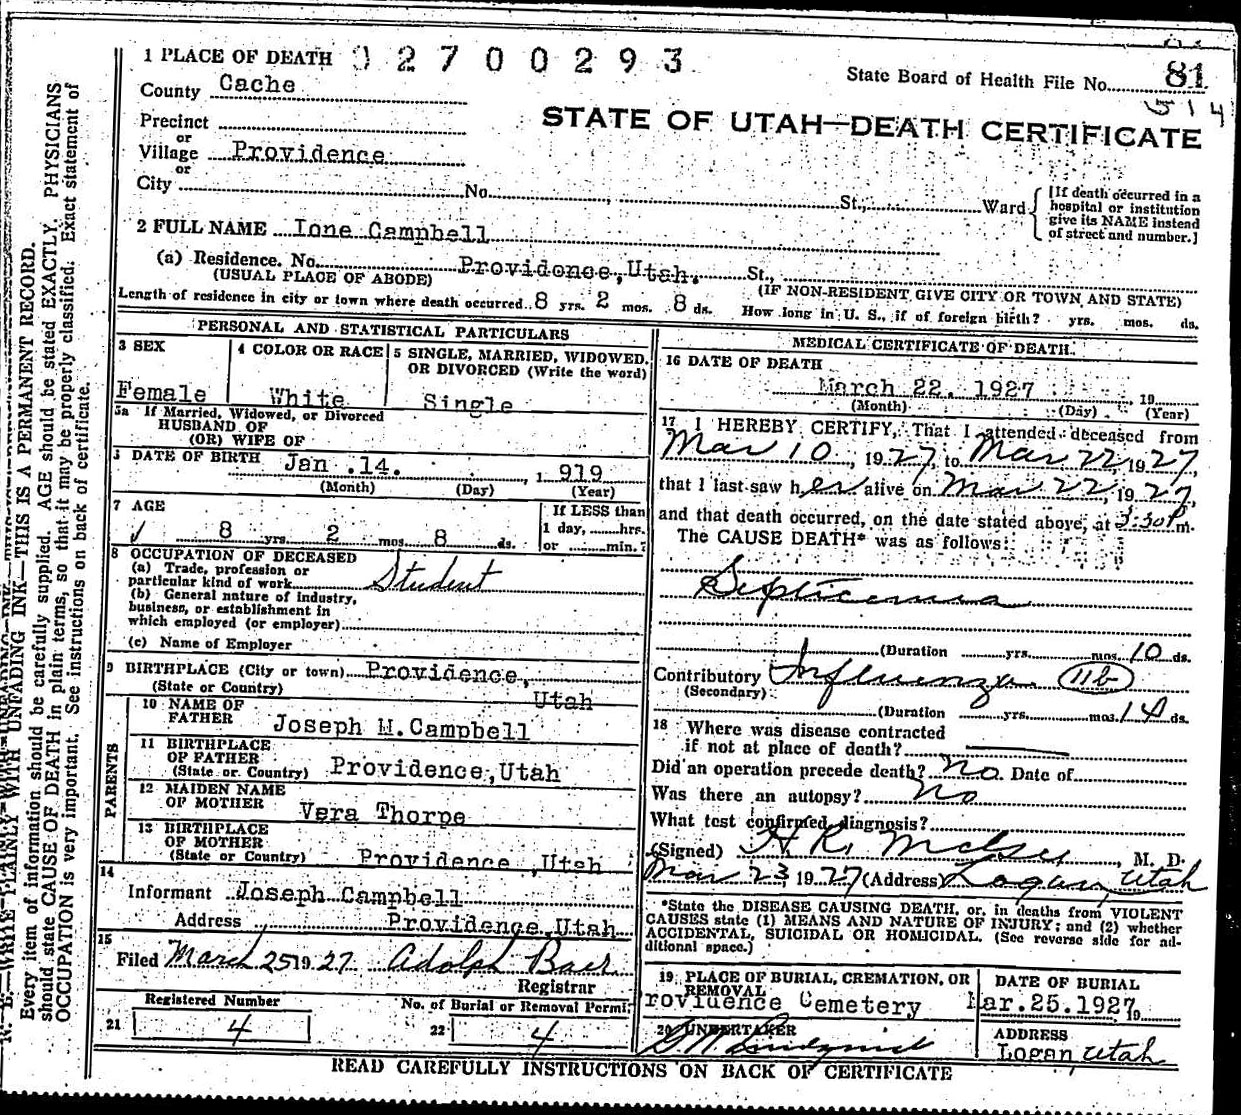 1 PLACE OF DEATH 02700293
State Board of Health File No. 81
514
County Cache
STATE OF UTAH—DEATH CERTIFICATE
Precinct
or
Village Providence
or
City No. St., Ward
[If death occurred in a
hospital or institution
give its NAME instead
of street and number.]
2 FULL NAME Ione Campbell
(a) Residence. No. Providence, Utah. St.,
(USUAL PLACE OF ABODE) (IF NON-RESIDENT GIVE CITY OR TOWN AND STATE)
Length of residence in city or town where death occurred 8 yrs. 2 mos. 8 ds. How long in U. S., if of foreign birth? yrs. mos. ds.
PERSONAL AND STATISTICAL PARTICULARS
3 SEX
Female
4 COLOR OR RACE
White
5 SINGLE, MARRIED, WIDOWED,
OR DIVORCED (Write the word)
Single
5a If Married, Widowed, or Divorced
HUSBAND OF
(OR) WIFE OF
DATE OF BIRTH Jan. 14. , 1 919
(Month) (Day) (Year)
7 AGE
8 yrs. 2 mos. 8 ds.
If LESS than
1 day, hrs.
or min.?
8 OCCUPATION OF DECEASED
(a) Trade, profession or
particular kind of work Student
(b) General nature of industry,
business, or establishment in
which employed (or employer)
(c) Name of Employer
9 BIRTHPLACE (City or town) Providence,
(State or Country) Utah
PARENTS
10 NAME OF
FATHER Joseph M. Campbell
11 BIRTHPLACE
OF FATHER
(State or Country) Providence, Utah
12 MAIDEN NAME
OF MOTHER Vera Thorpe
13 BIRTHPLACE
OF MOTHER
(State or Country) Providence, Utah
14
Informant Joseph Campbell
Address Providence, Utah
15
Filed March 25 19 27 Adolph Baer
Registrar
Registered Number
21 4
No. of Burial or Removal Permit
22 4
MEDICAL CERTIFICATE OF DEATH
16 DATE OF DEATH
March 22. 1927 , 19
(Month) (Day) (Year)
17 I HEREBY CERTIFY, That I attended deceased from
Mar 10, 1927, to Mar 22 1927,
that I last saw her alive on Mar 22, 1927,
and that death occurred, on the date stated above, at 3:30 P m.
The CAUSE DEATH* was as follows:
Septicemia
(Duration yrs. mos. 10 ds.
Contributory Influenza 11b
(Secondary)
(Duration yrs. mos. 14 ds.
18 Where was disease contracted
if not at place of death?
Did an operation precede death? No. Date of
Was there an autopsy? No
What test confirmed diagnosis?
(Signed) , M. D.
Mar 23 1927 (Address) Logan, Utah
*State the DISEASE CAUSING DEATH, or, in deaths from VIOLENT
CAUSES state (1) MEANS AND NATURE OF INJURY; and (2) whether
ACCIDENTAL, SUICIDAL OR HOMICIDAL. (See reverse side for ad-
ditional space.)
19 PLACE OF BURIAL, CREMATION, OR
REMOVAL
Providence Cemetery
DATE OF BURIAL
Mar. 25. 1927 19
20 UNDERTAKER
ADDRESS
Logan, Utah
READ CAREFULLY INSTRUCTIONS ON BACK OF CERTIFICATE
N. B.—WRITE PLAINLY WITH UNFADING INK—THIS IS A PERMANENT RECORD.
Every item of information should be carefully supplied. AGE should be stated EXACTLY. PHYSICIANS
should state CAUSE OF DEATH in plain terms, so that it may be properly classified. Exact statement of
OCCUPATION is very important. See instructions on back of certificate.